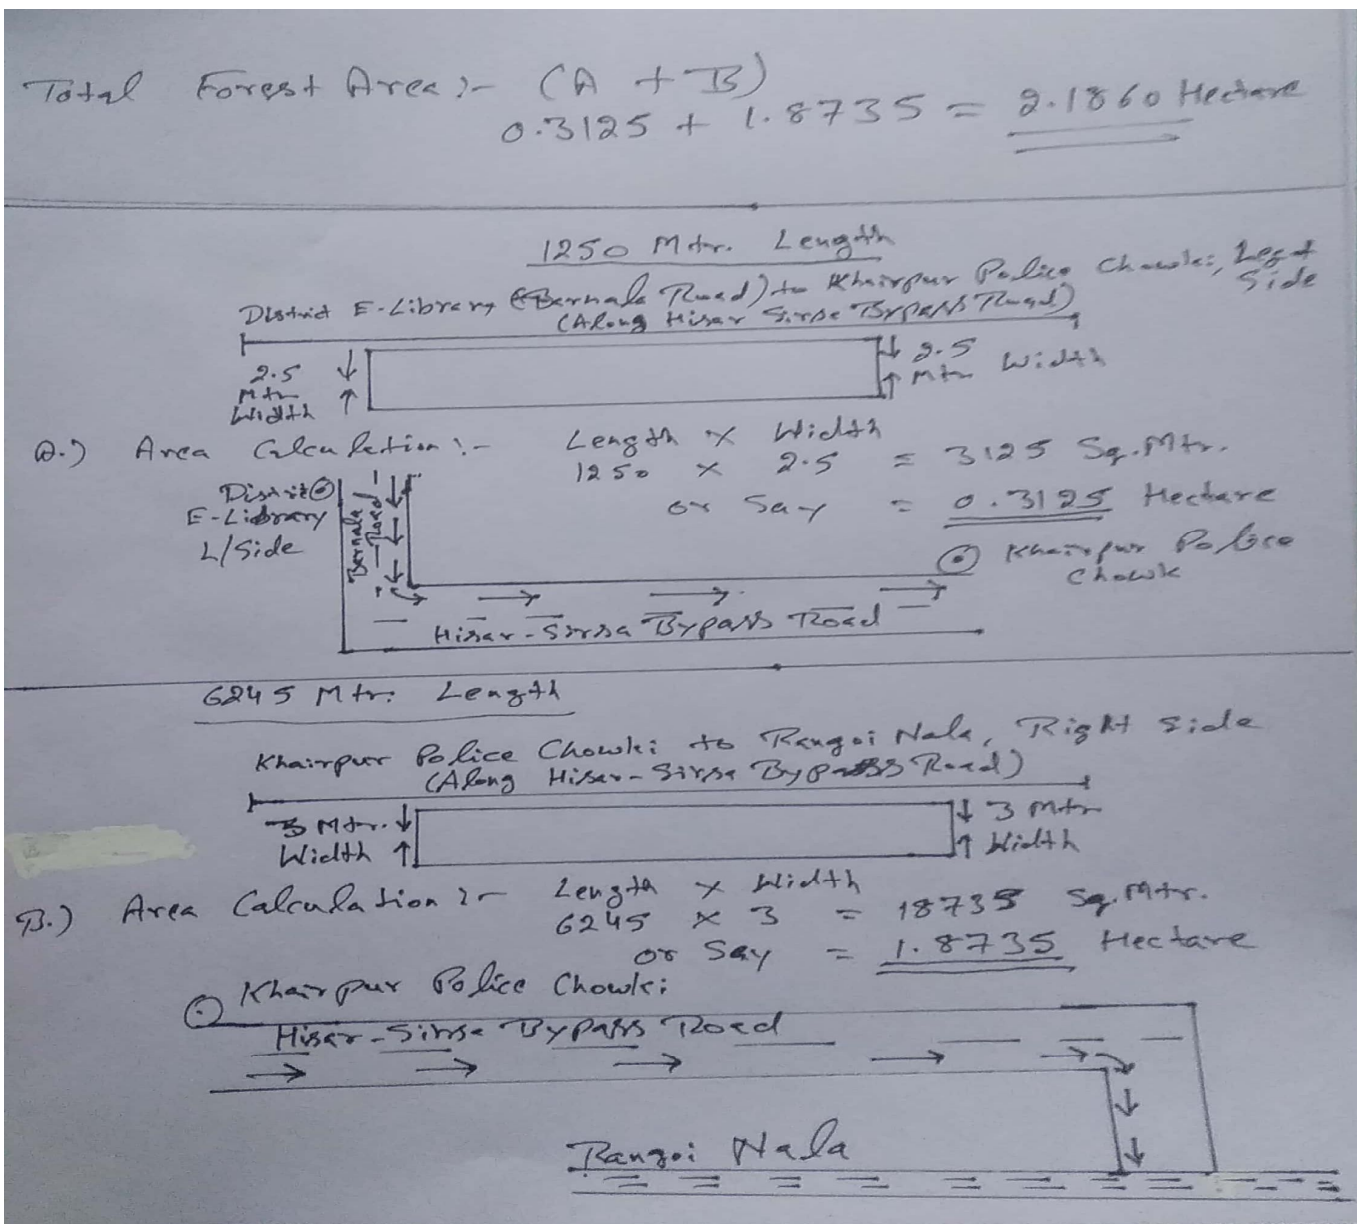 Total Forest Area :- (A + B)
0.3125 + 1.8735 = 2.1860 Hectare
1250 Mtr. Length
District E-Library (Barnala Road) to Khairpur Police Chowki, Left Side
(Along Hisar Sirsa Bypass Road)
2.5 Mtr Width
2.5 Mtr Width
A.) Area Calculation :- Length x Width
1250 x 2.5 = 3125 Sq. Mtr.
or Say = 0.3125 Hectare
District E-Library L/Side
Barnala Road
Khairpur Police Chowk
Hisar-Sirsa Bypass Road
6245 Mtr. Length
Khairpur Police Chowki to Rangoi Nala, Right Side
(Along Hisar-Sirsa Bypass Road)
3 Mtr. Width
3 Mtr Width
B.) Area Calculation :- Length x Width
6245 x 3 = 18735 Sq. Mtr.
or Say = 1.8735 Hectare
Khairpur Police Chowki
Hisar-Sirsa Bypass Road
Rangoi Nala